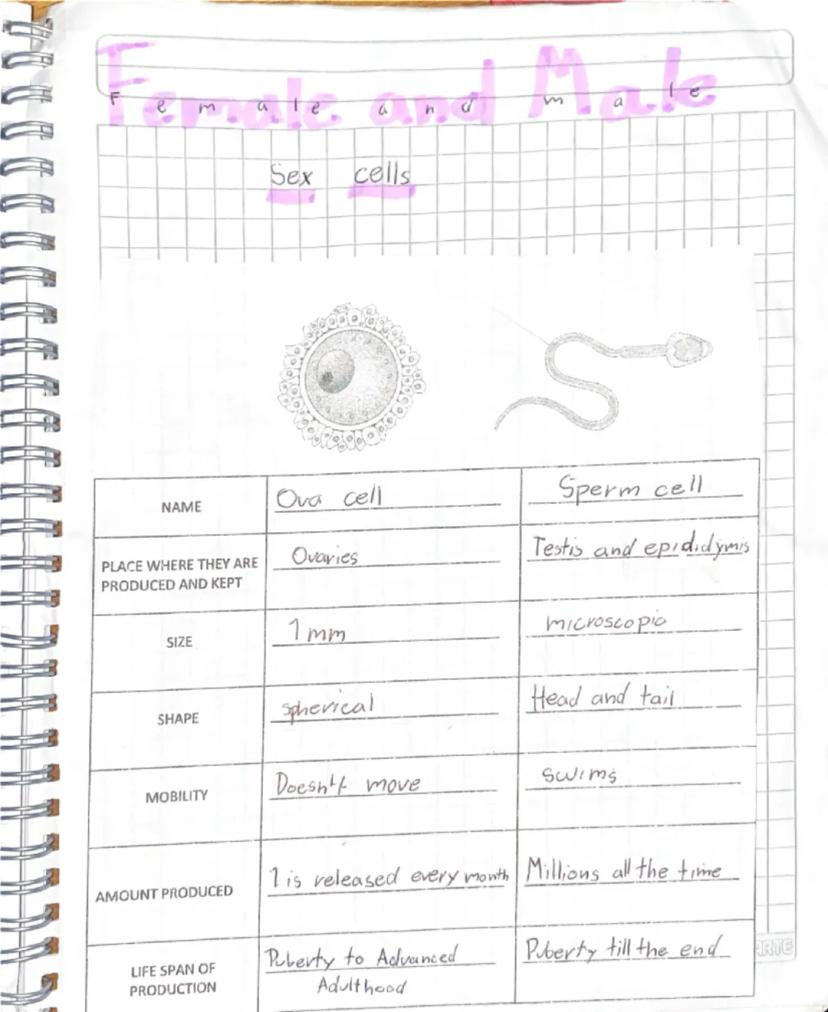 Female and Male
Female and male
Sex cells
NAME
Ova cell
Sperm cell
PLACE WHERE THEY ARE
PRODUCED AND KEPT
Ovaries
Testis and epididymis
SIZE
1 mm
microscopic
SHAPE
spherical
Head and tail
MOBILITY
Doesn't move
swims
AMOUNT PRODUCED
1 is released every month
Millions all the time
LIFE SPAN OF
PRODUCTION
Puberty to Advanced
Adulthood
Puberty till the end
ARTE